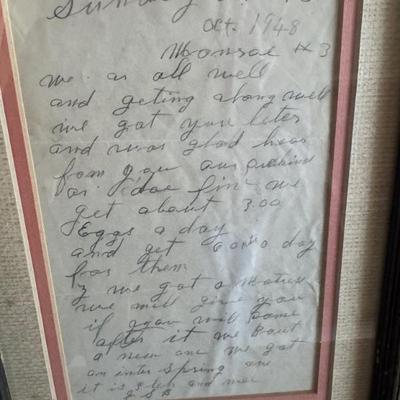 Sunday
Oct. 1948
Monroe # 3
we as all well
and geting along well
we got your leter
and was glad hear
from you our
as doe fin we
get about 300
Eggs a day
and get a day
for them
we got a Matres
we will give you
if you will Come
after it we Bout
a new one we got
an inter Spring one
it is and
J.S.B